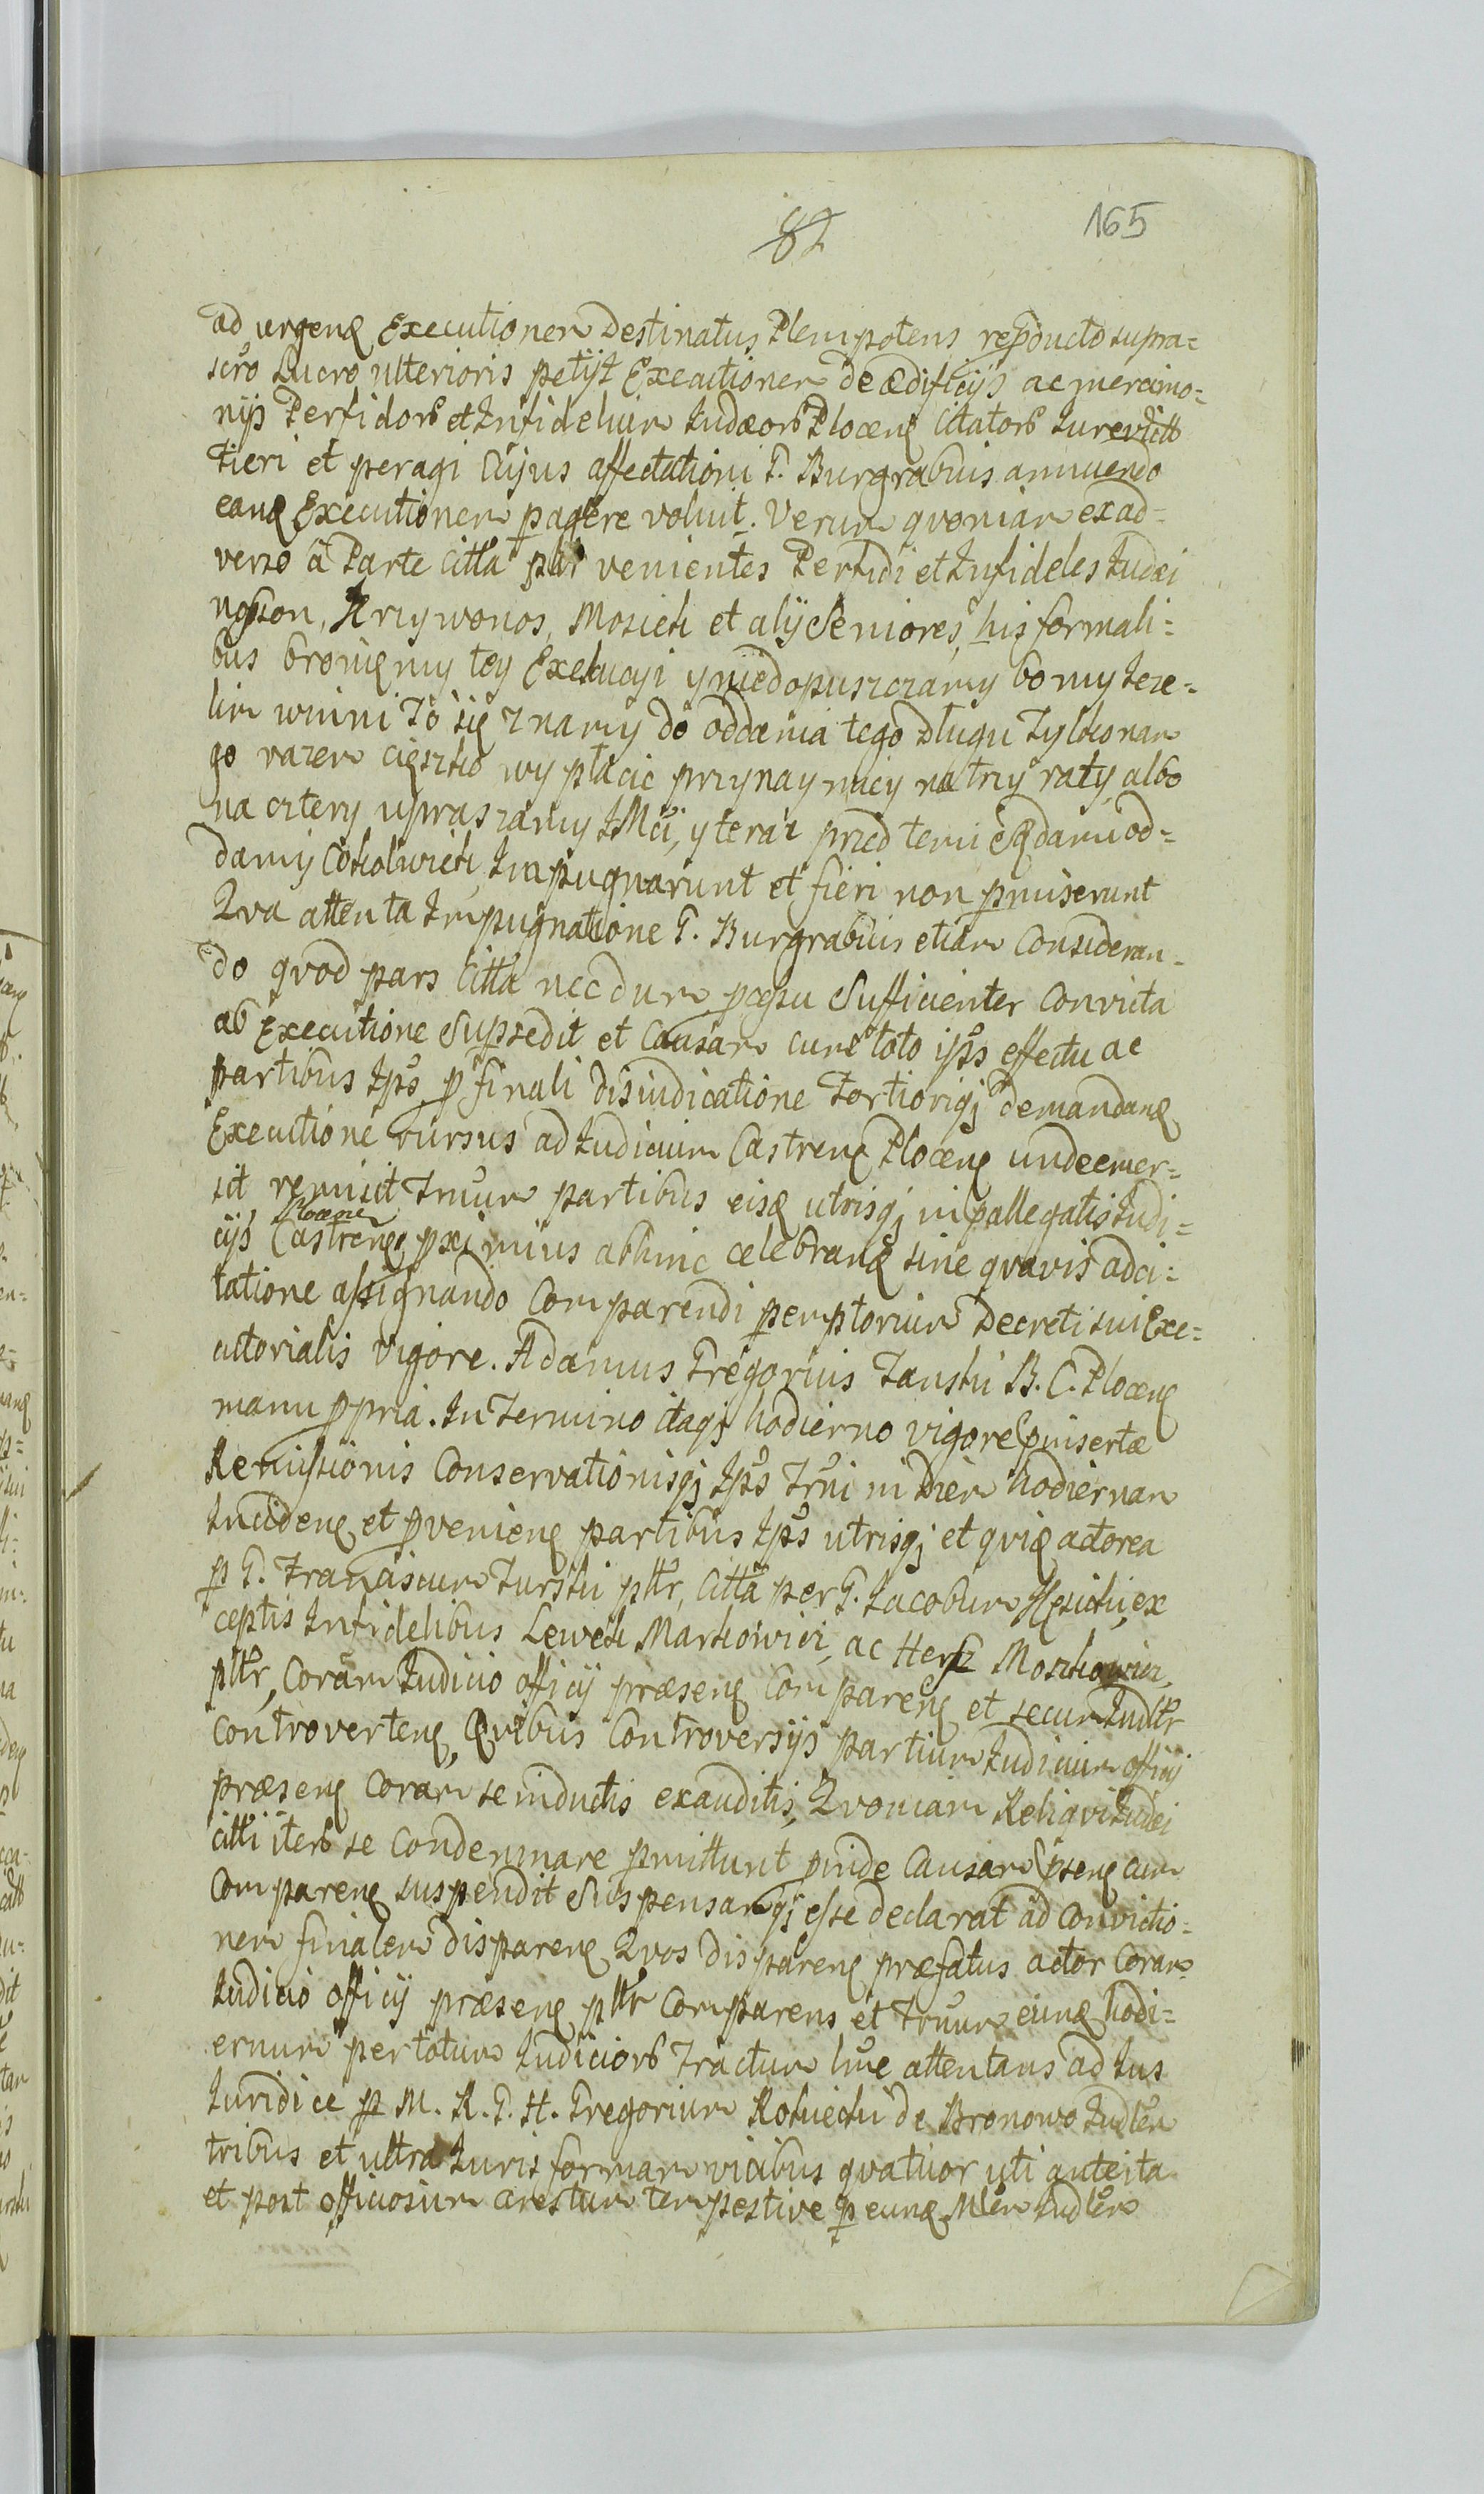 82 165
ad urgen Executionem Destinatus Plenipotens reproducto supra=
scro Lucro ulterioris petijt Exeactionem De ædificijs ac mercimo=
nijs Perfidorb et Infidelium Judæorb Plocen Citatorb Jurevictb
Fieri et peragi Cujus affectationi G. Burgrabius annuendo
eand Executionem pagere voluit. Verum qvoniam ex ad=
verso â Parte Citta pltr venientes Perfidi et Infideles Judæi
Krzywonos, Mosiek et alij Seniores, his formali=
bus broniemy tey Exekucyi y niedopuszczamy bo my Jeze=
lim winni To się znamy do oddania tego Długu Tylko nam
go razem cięszko wypłacic przynaymniey na trzy raty, albo
na cztery upraszamy JMci, y teraz przed temi Sędami od=
damy Cokolwiek, Impugnarunt et fieri non pmiserunt
Qva attenta Impugnatione G. Burgrabius etiam Consideran=
do qvod pars Citta necdum Sufficienter Convicta
ab Executione Supsedit et Causam cum toto ipss effectu ac
partibus Ipss p finali Disiudicatione Fortiorigj demandand
Executione rursus ad Judicium Castren Plocen unde emer=
sit remisit Trnum partibus eisd utrisqj in pallegatis Judi=
cijs Castren Plocen pximius abhinc celebrand sine qvavis adci=
tatione assignando Comparendi pemptorium Decreti sui Exe=
cutorialis vigore. Adamus Gregorius Tanski B. C. Plocen
manu ppria. In Termino itaqj hodierno vigore pinsertæ
Remissionis Conservationisqj Ipss Trni in Diem hodiernam
Inciden et pvenien partibus Ipss utrisqj et qvid actorea
p G. Franciscum Turski pltr, Citta per G. Jacobum ex
ceptis Infidelibus Lewek Markowicz, ac Hersz Moszkowicz,
pltr, Coram Judicio officij præsen Comparen et secum Judltr
Controverten, Qvibus Controversijs partium Judicium officij
præsen Coram se inductis exauditis, Qvoniam Reliqvi Judæi
citti iterb se Condemnare pmittunt pinde Causam psen cum
Comparen suspendit Suspensamqj esse declarat ad Convictio=
nem finalem disparen Qvos disparen præfatus actor Coram
Judicio officij præsen pltr Comparens et Trnum eund hodi=
ernum per totum Judiciorb Tractum hne attentans ad Jus
Juridice p M. R. G. H. Gregorium Kolnecki de Bronowo Judlem
tribus et ultra Juris formam vicibus qvatuor uti anteita
et post officiosum arestum tempestive p eund Mlem Judlem